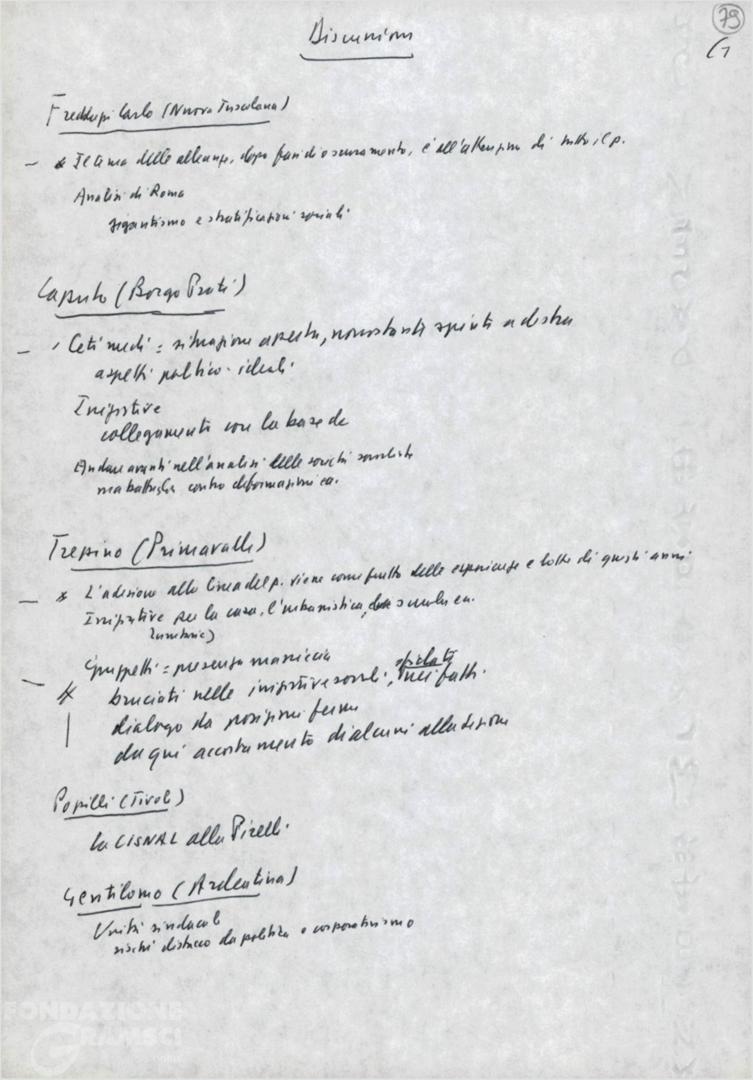 79
Discussione
Freddupi Carlo (Nuova Tuscolana)
- * Il tema delle alleanze, dopo fasi di oscuramento, è all'attenzione di tutto il p.
Analisi di Roma
gigantismo e stratificazioni sociali.
Caputo (Borgo Prati)
- Ceti medi = situazione aperta, nonostante spinte a destra
aspetti politico-ideali.
Iniziative
collegamenti con la base dc
Andare avanti nell'analisi delle società socialiste
ma battaglia contro deformazioni ca.
Trezzino (Primavalle)
- * L'adesione alla linea del p. viene come frutto delle esperienze e lotte di questi anni
Iniziative per la casa, l'urbanistica, scuola ca.
- * Gruppetti = presenza massiccia
bruciati nelle iniziative sociali, isolati nei fatti.
dialogo da posizioni ferme
da qui accostamento di alcuni alla sezione
Popilli (Tivoli)
la CISNAL alla Pirelli.
Gentilomo (Ardeatina)
Unità sindacale
rischi distacco da politica e corporativismo
FONDAZIONE
GRAMSCI